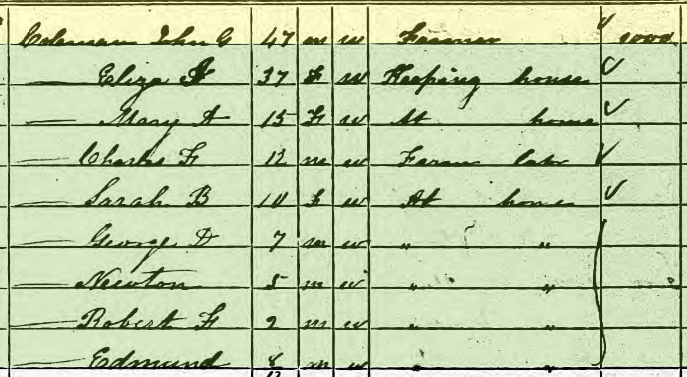 Coleman John G 47 m w Farmer
— Eliza F 37 F w Keeping house
— Mary A 15 F w At home
— Charles F 12 m w Farm labr
— Sarah B 10 F w At home
— George D 7 m w " "
— Newton 5 m w " "
— Robert F 2 m w " "
— Edmund m w " "